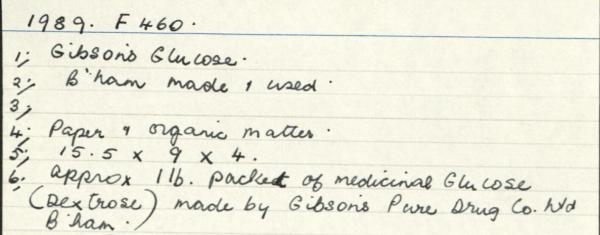 1989. F 460.
1; Gibson's Glucose.
2; B'ham made & used.
3;
4; Paper & organic matter.
5; 15.5 x 9 x 4.
6; approx 1lb. packet of medicinal Glucose
(Dextrose) made by Gibson's Pure Drug Co. Ltd
B'ham.